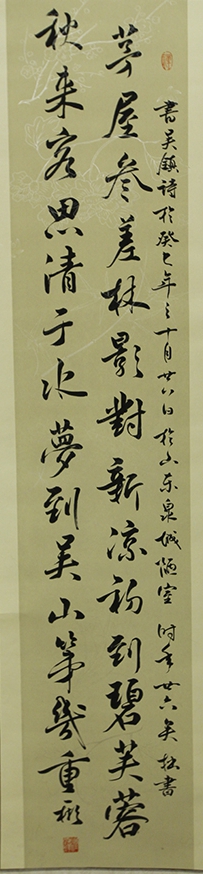 書吴鎮詩於癸巳年之十月廿八日於山东泉城陋室 时年廿六矣 拙書
茅屋参差林影對新凉初到碧芙蓉
秋来客思清于水夢到吴山第幾重